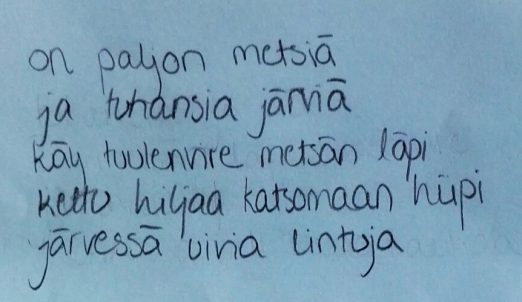 on paljon metsiä
ja tuhansia järviä
käy tuulenvire metsän läpi
kettu hiljaa katsomaan hiipi
järvessä uivia lintuja